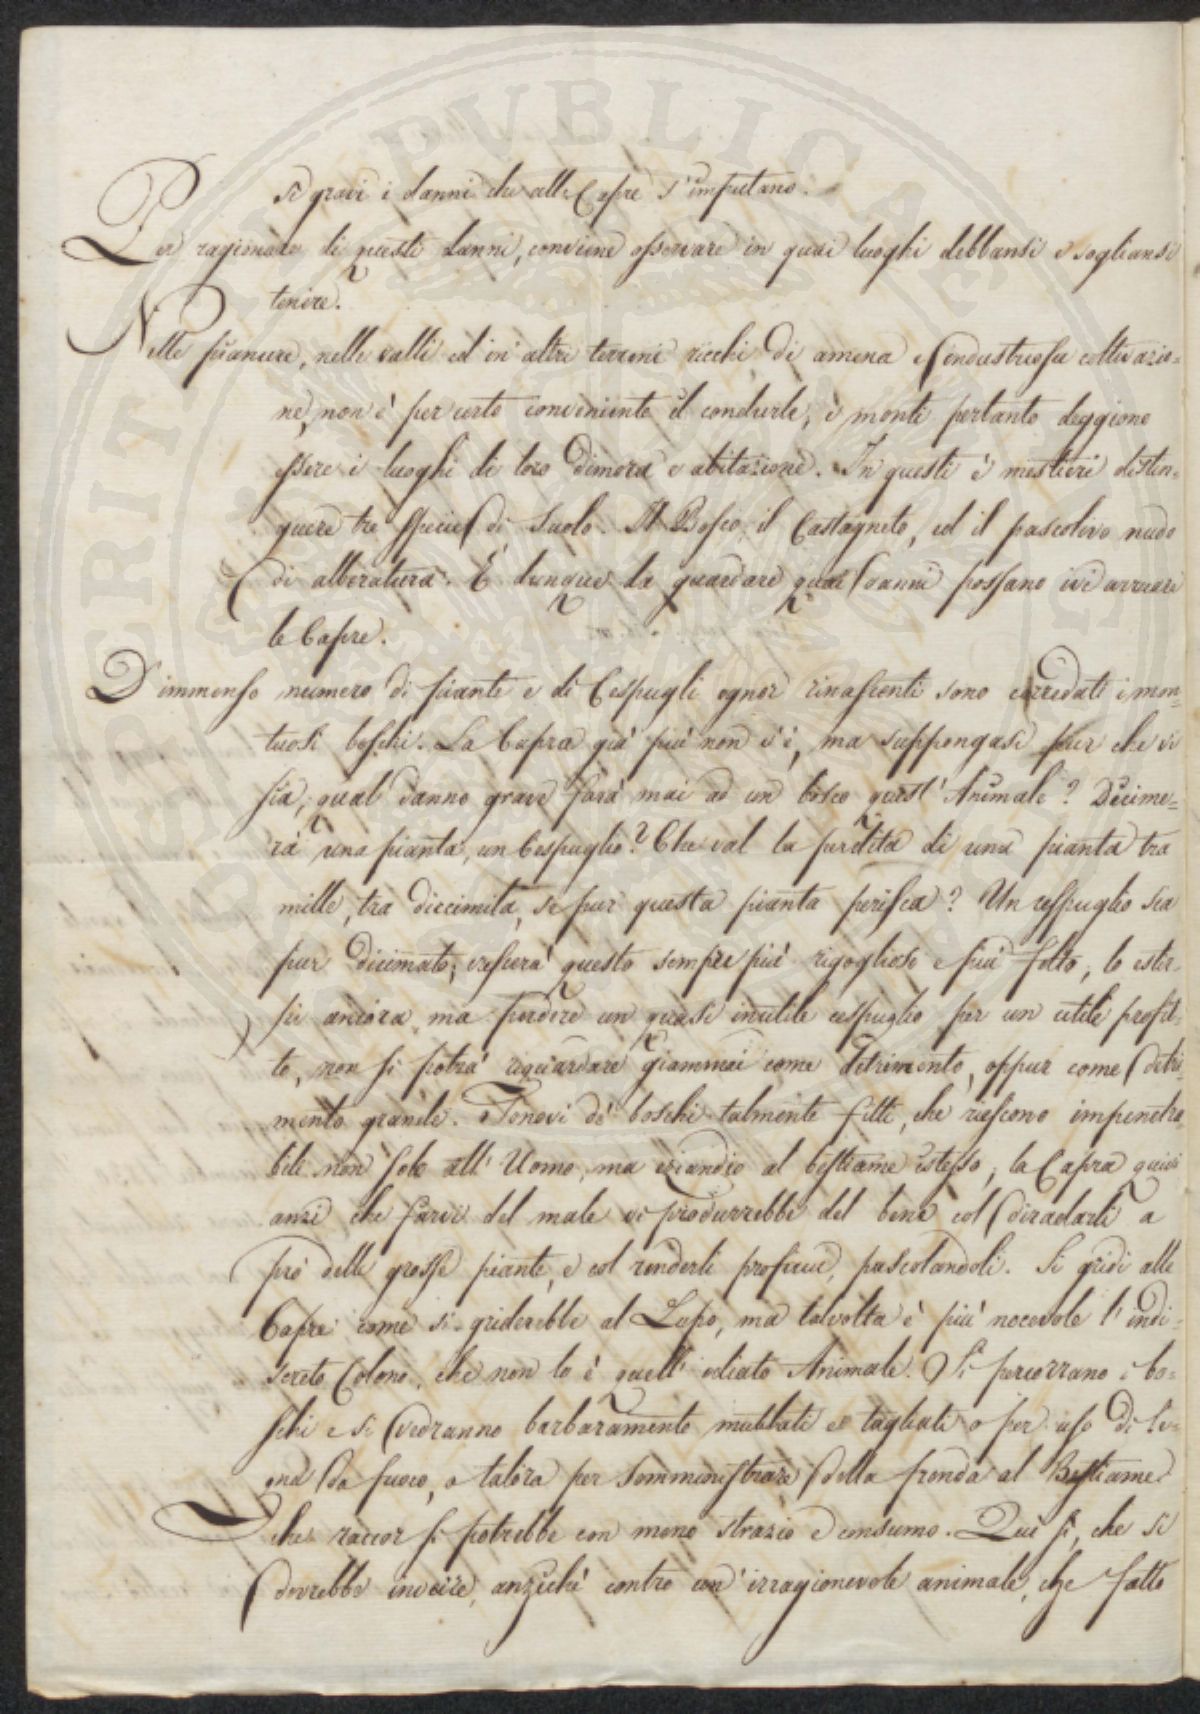 sì gravi i danni che alle Capre s'imputano.
Per ragionare di questi danni, conviene osservare in quai luoghi debbansi e sogliansi
tenere.
Nelle pianure, nelle valli ed in altri terreni ricchi di amena e industriosa coltivazio=
ne, non è per certo conveniente il condurle, i monti pertanto deggiono
essere i luoghi di loro dimora e abitazione. In questi è mestieri distin=
guere tre specie di Suolo. Il Bosco, il Castagneto, ed il pascolivo nudo
di alberatura. È dunque da guardare quai danni possano ivi arrecare
le Capre.
D'immenso numero di piante e di Cespugli ognor rinascenti sono corredati i mon=
tuosi boschi. La Capra già più non v'è, ma suppongasi pur che vi
sia, qual danno grave farà mai ad un bosco quest'Animale? Decime=
rà una pianta, un Cespuglio? Che val la perdita di una pianta tra
mille, tra diecimila, se pur questa pianta perisca? Un cespuglio sia
pur decimato, crescerà questo sempre più rigoglioso e più folto, lo ester=
pi ancora, ma perdere un quasi inutile cespuglio per un utile profit=
to, non si potrà riguardare giammai come detrimento, oppur come detri=
mento grande. Sonovi de' boschi talmente fitti, che riescono impenetra
bili non solo all'Uomo, ma eziandio al bestiame istesso, la Capra quivi
anzi che farvi del male vi produrrebbe del bene col diradarli a
prò delle grosse piante, e col renderli proficui, pascolandoli. Si gridi alle
Capre come si griderebbe al Lupo, ma talvolta è più nocevole l'indi=
screto Colono, che non lo è quell'odiato Animale. Si percorrano i bo=
schi e si vedranno barbaramente mutilati e tagliati o per uso di le=
gna da fuoco, o talora per somministrare della fronda al Bestiame
che raccor si potrebbe con meno strazio e consumo. Qui sì, che si
dovrebbe inveire, anzichè contro un'irragionevole animale, che fatto